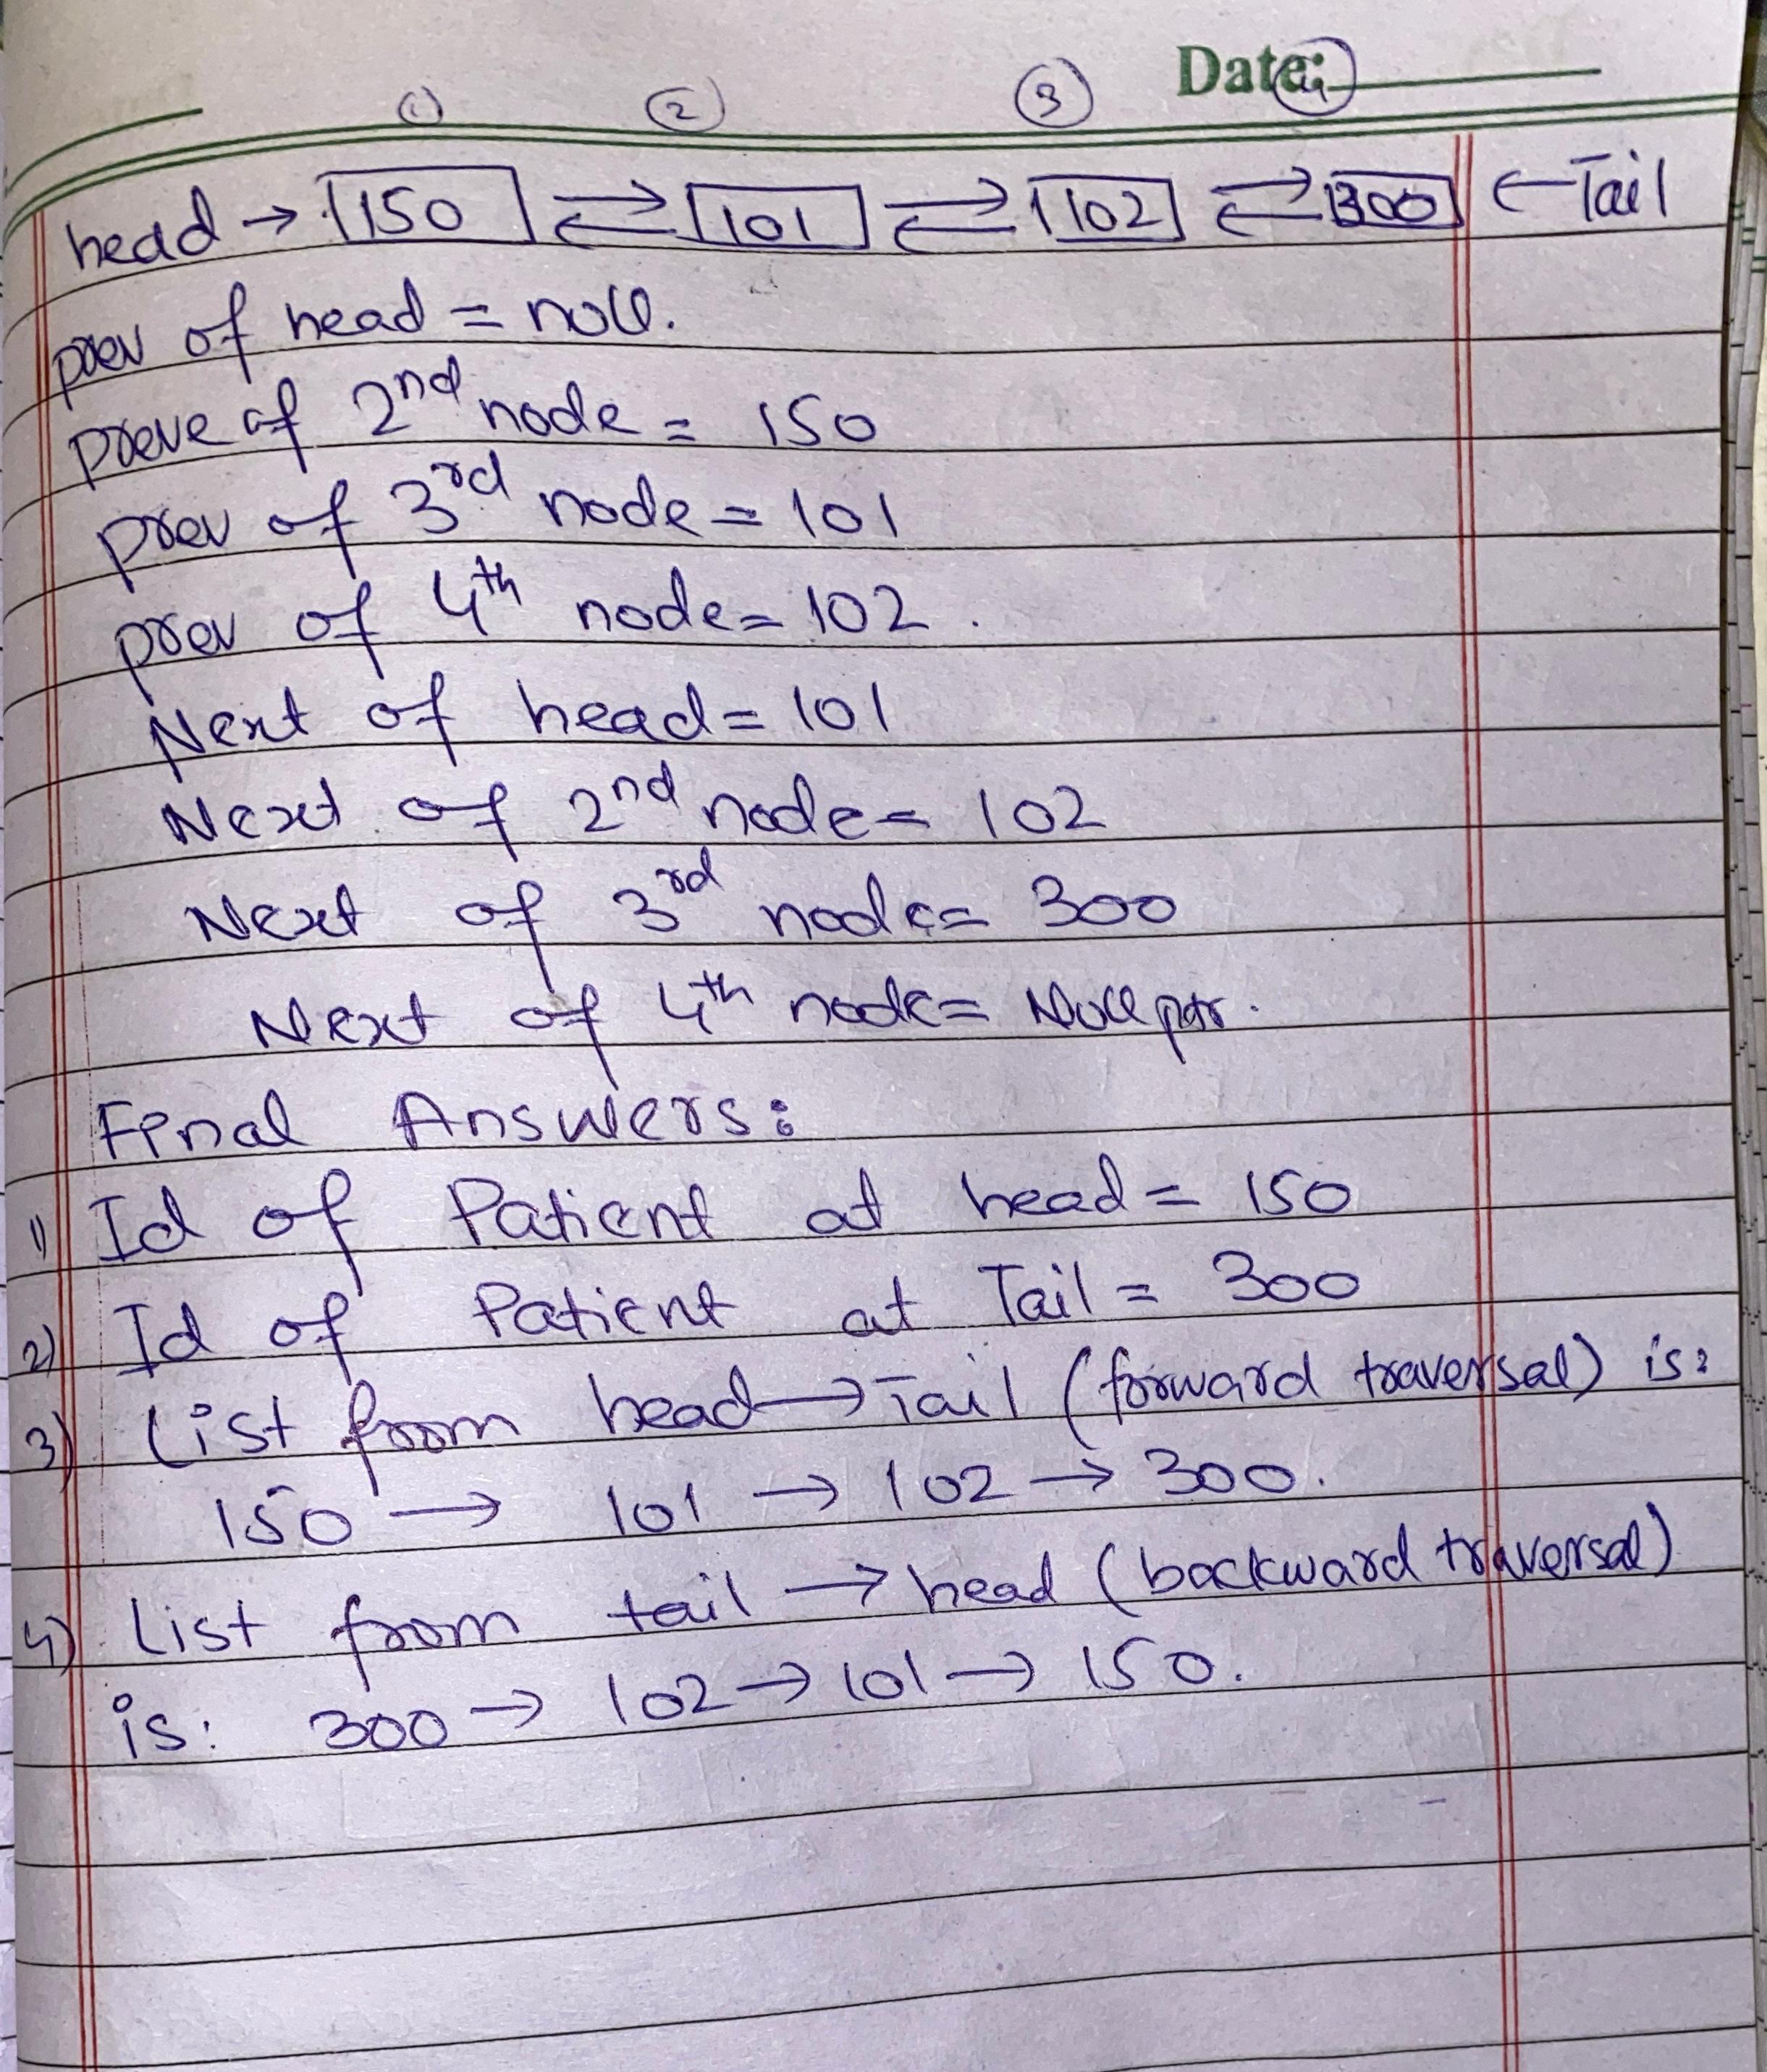 Date:
① ② ③ ④
head → 150 ⇄ 101 ⇄ 102 ⇄ 300 ← Tail
prev of head = null.
preve of 2nd node = 150
prev of 3rd node = 101
prev of 4th node = 102.
Next of head = 101
Next of 2nd node = 102
Next of 3rd node = 300
Next of 4th node = Null ptr.
Final Answers:
1) Id of Patient at head = 150
2) Id of Patient at Tail = 300
3) List from head → Tail (forward traversal) is:
150 → 101 → 102 → 300.
4) List from tail → head (backward traversal)
is: 300 → 102 → 101 → 150.